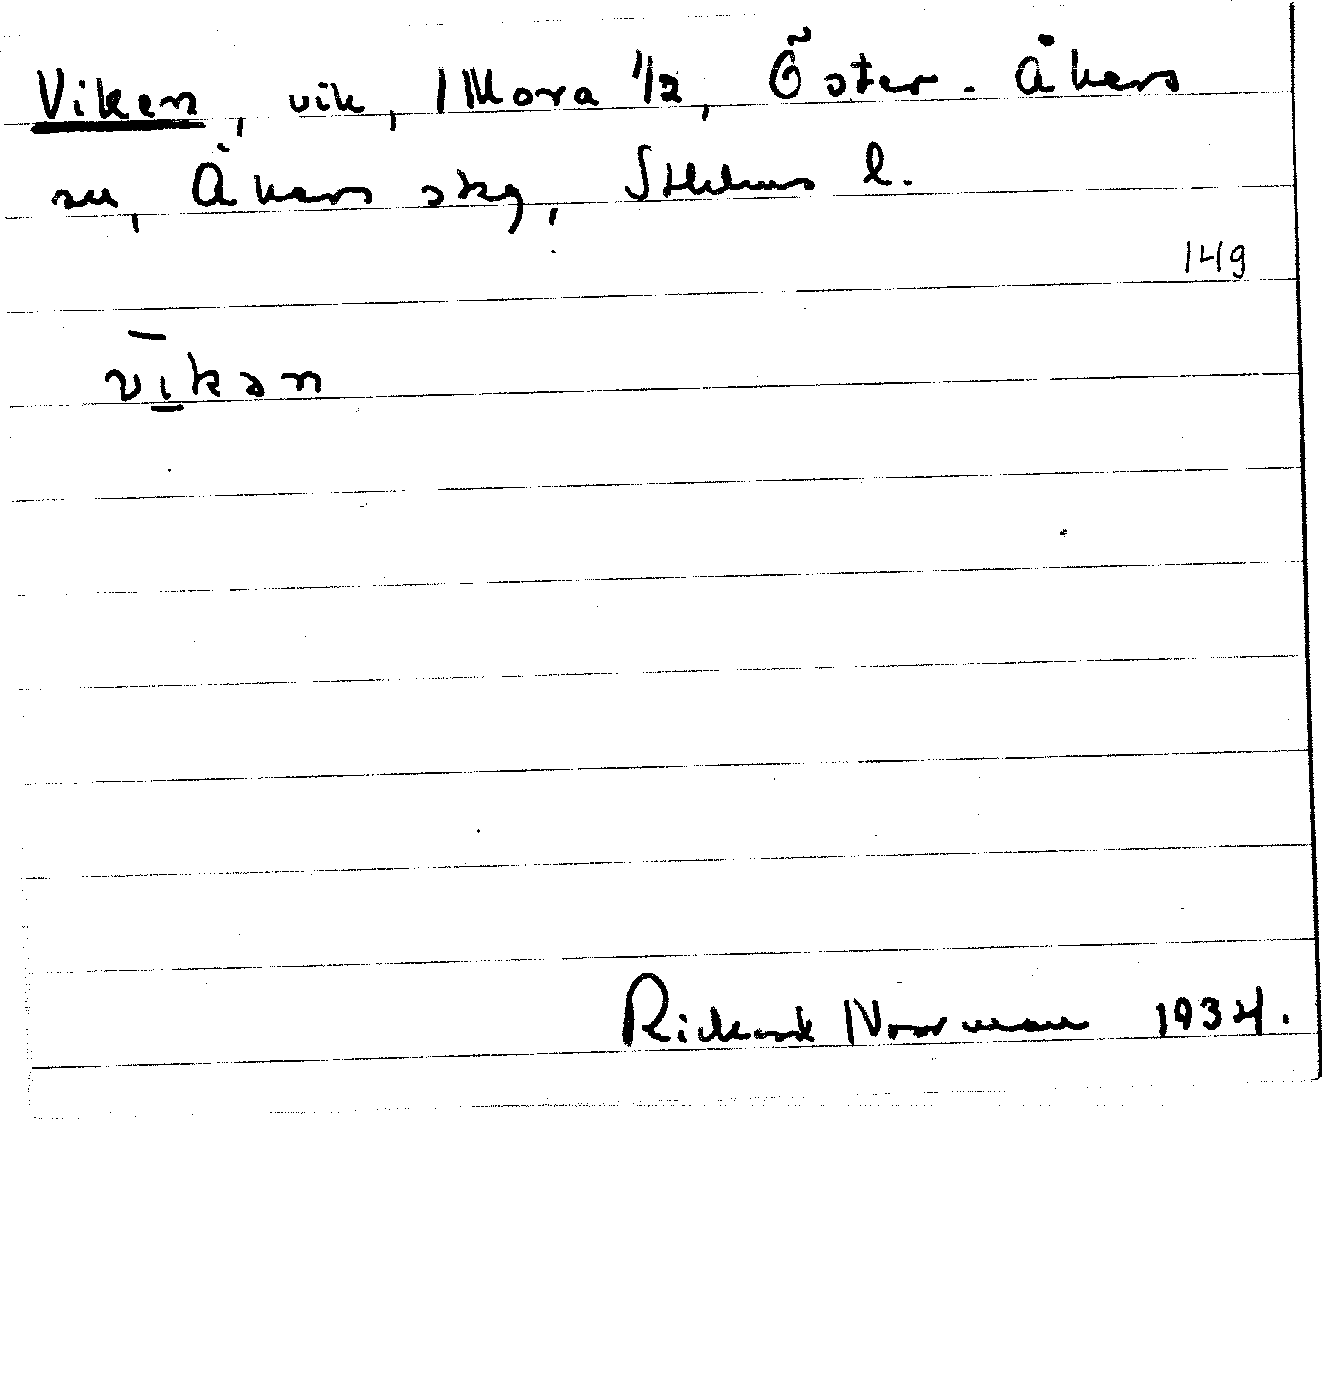 Viken, vik, 1 Mora 1/2, Öster-Åkers
sn, Åkers skg, Sthlms l.
149
v̄i̱kən
Rickard Norrman 1934.